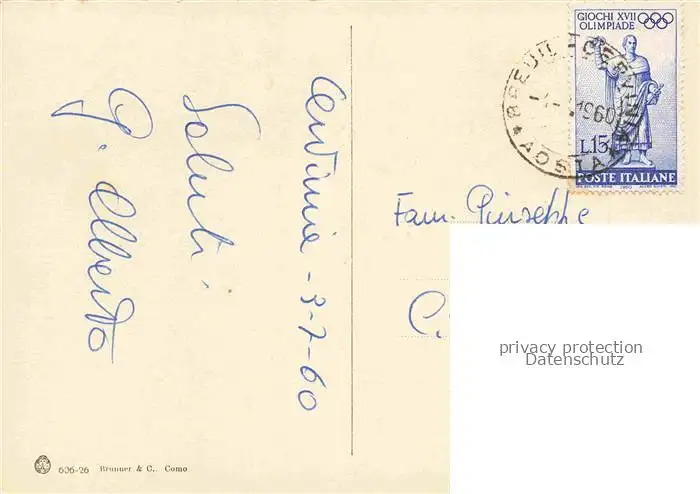 Cervinia - 3-7-60
Saluti
G. Alberto
GIOCHI XVII
OLIMPIADE
BREUIL CERVINIA
1960
AOSTA
L.15
POSTE ITALIANE
1960
Fam. Giuseppe
C.
privacy protection
Datenschutz
606-26 Brunner & C., Como